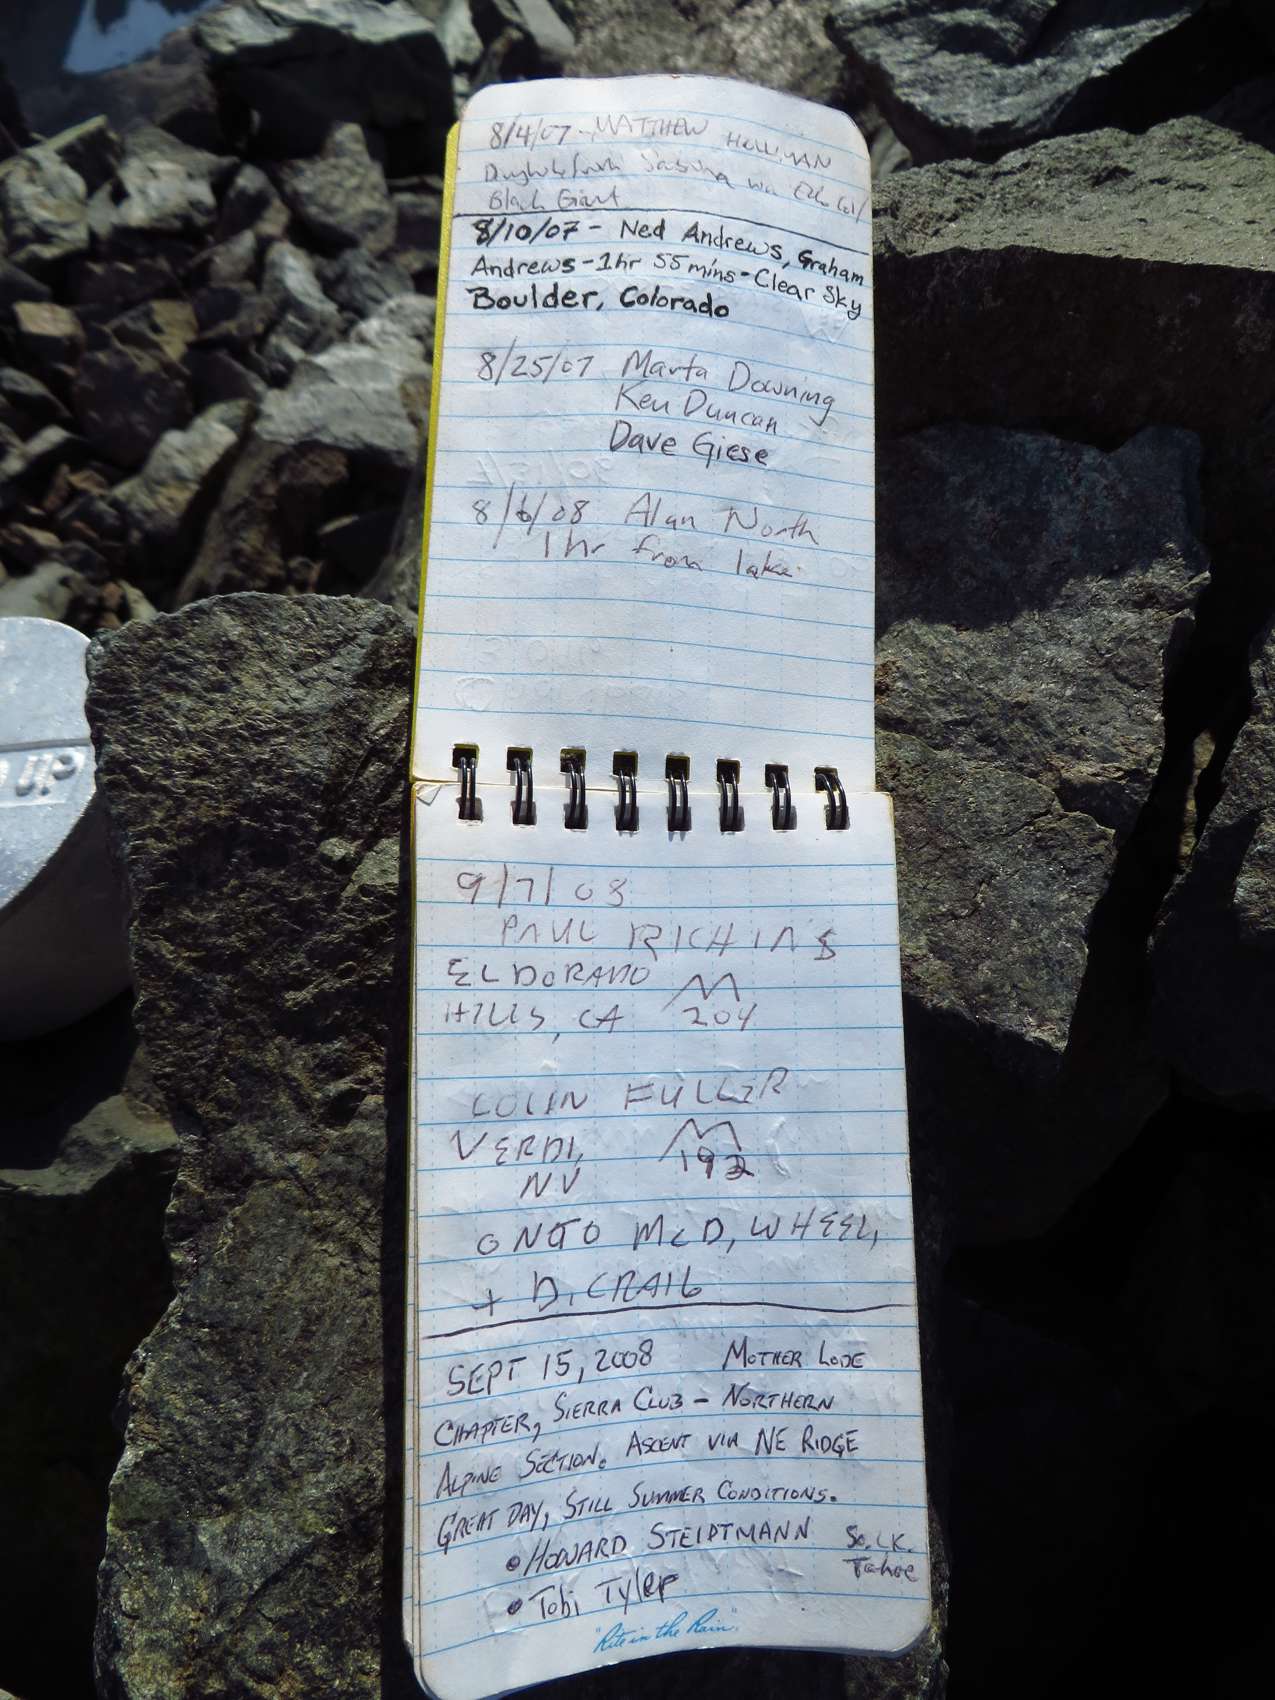 8/4/07 - MATTHEW HOLLIMAN
from Sabrina via Echo Col/
Black Giant
8/10/07 - Ned Andrews, Graham
Andrews - 1hr 55 mins - Clear Sky
Boulder, Colorado
8/25/07 Marta Downing
Ken Duncan
Dave Giese
8/6/08 Alan North
1 hr from lake
9/7/08
PAUL RICHINS
EL DORADO
HILLS, CA 204
COLIN FULLER
VERDI, 192
NV
ONTO McD, WHEEL,
+ D. CRAIG
SEPT 15, 2008 MOTHER LODE
CHAPTER, SIERRA CLUB - NORTHERN
ALPINE SECTION. ASCENT VIA NE RIDGE
GREAT DAY, STILL SUMMER CONDITIONS.
• HOWARD STEIDTMANN So. LK.
Tahoe
• Tobi Tyler
"Rite in the Rain"